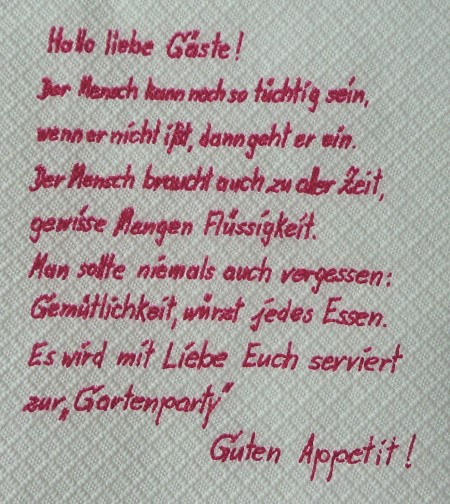 Hallo liebe Gäste!
Der Mensch kann noch so tüchtig sein,
wenn er nicht ißt, dann geht er ein.
Der Mensch braucht auch zu aller Zeit,
gewisse Mengen Flüssigkeit.
Man sollte niemals auch vergessen:
Gemütlichkeit, würzt jedes Essen.
Es wird mit Liebe Euch serviert
zur „Gartenparty"
Guten Appetit!